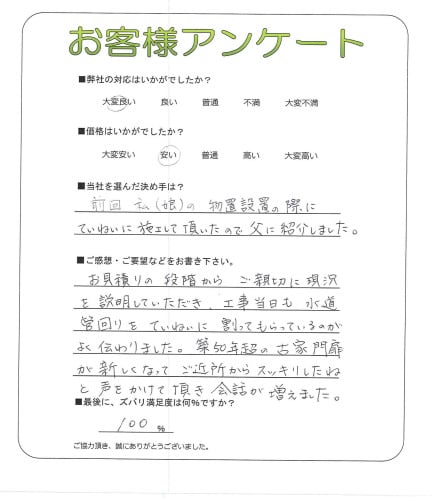 お客様アンケート
■弊社の対応はいかがでしたか?
大変良い 良い 普通 不満 大変不満
■価格はいかがでしたか?
大変安い 安い 普通 高い 大変高い
■当社を選んだ決め手は?
前回 私(娘)の 物置設置の 際に
ていねいに 施工して頂いたので 父に 紹介しました。
■ご感想・ご要望などをお書き下さい。
お見積りの 段階から ご親切に 現況
を 説明していただき、工事当日も 水道
管回りを ていねいに 割ってもらっているのが
よく 伝わりました。築50年超の 古家 門扉
が 新しくなって ご近所から スッキリしたね
と 声をかけて 頂き 会話が 増えました。
■最後に、ズバリ満足度は何%ですか?
100 %
ご協力頂き、誠にありがとうございました。